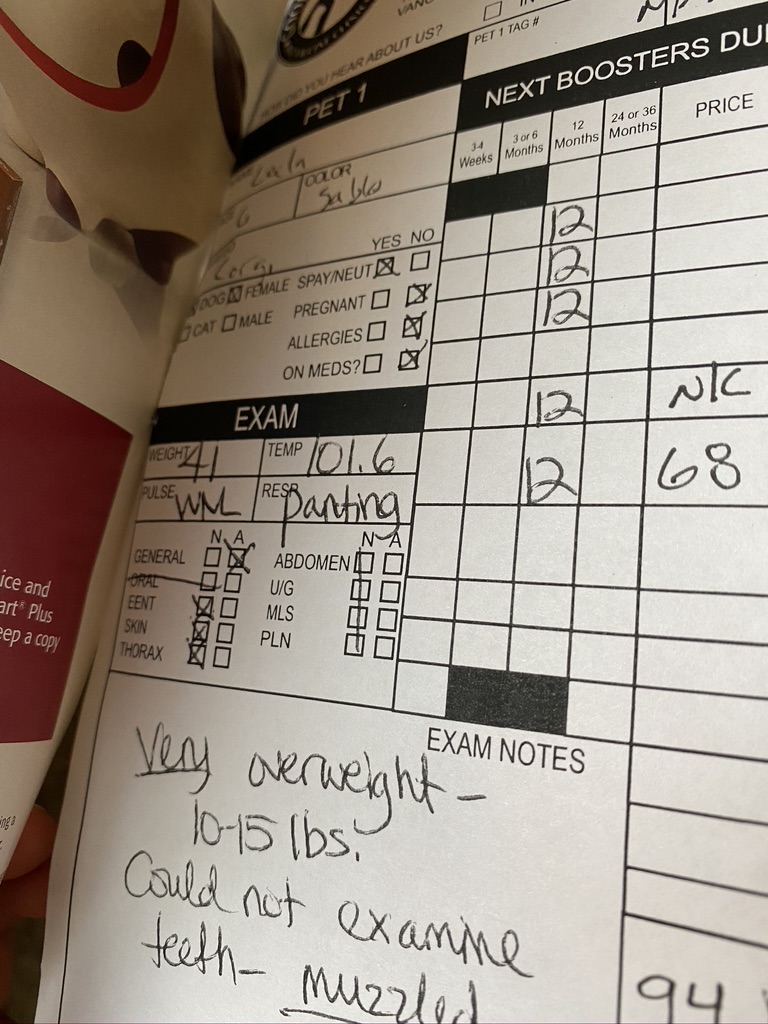 HOW DID YOU HEAR ABOUT US?
PET 1 TAG #
PET 1
NEXT BOOSTERS DU
3-4 Weeks
3 or 6 Months
12 Months
24 or 36 Months
PRICE
COLOR
Sable
6
Corgi
YES NO
DOG FEMALE SPAY/NEUT
CAT MALE PREGNANT
ALLERGIES
ON MEDS?
12
12
12
12 N/C
12 68
EXAM
WEIGHT 41 TEMP 101.6
PULSE WNL RESP panting
N A N A
GENERAL ABDOMEN
ORAL U/G
EENT MLS
SKIN PLN
THORAX
EXAM NOTES
Very overweight -
10-15 lbs.
Could not examine
teeth - muzzled
94
ice and
art® Plus
eep a copy